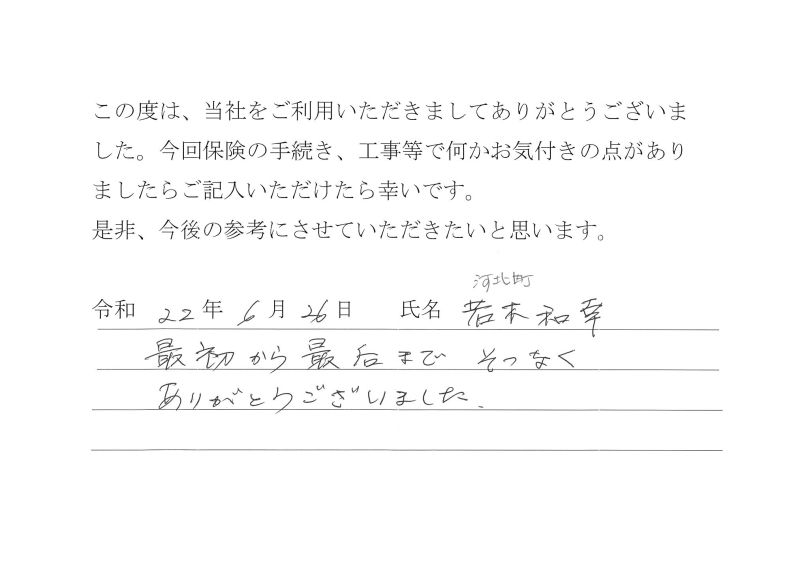 この度は、当社をご利用いただきましてありがとうございま
した。今回保険の手続き、工事等で何かお気付きの点があり
ましたらご記入いただけたら幸いです。
是非、今後の参考にさせていただきたいと思います。
河北町
令和 22年 6月 26日 氏名 若木和幸
最初から最后まで そつなく
ありがとうございました.